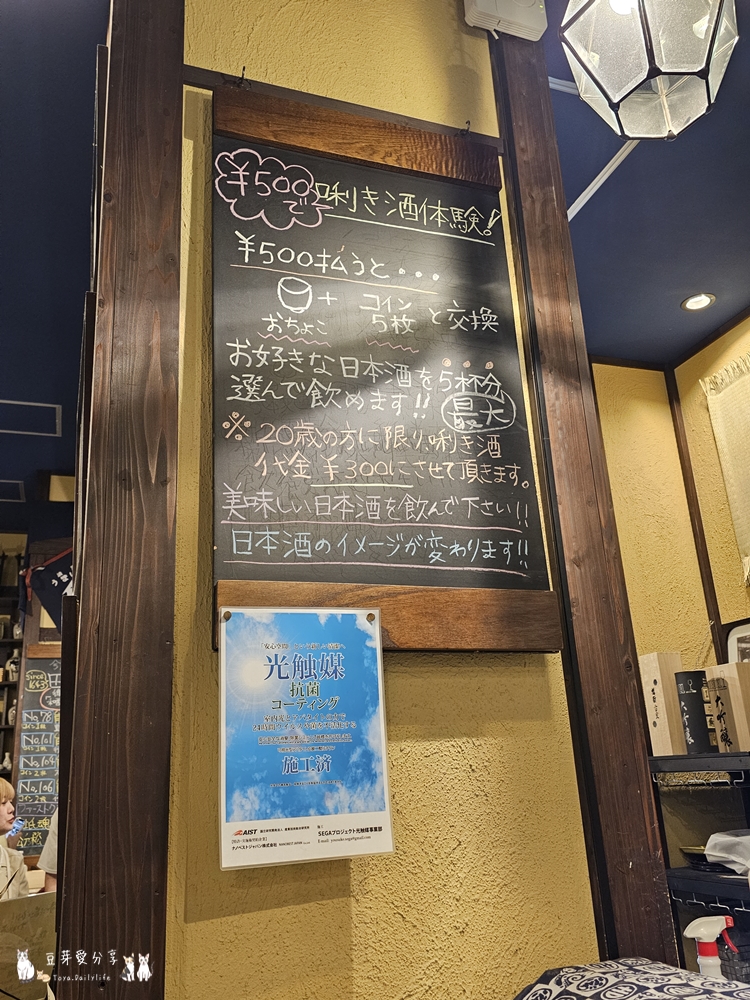 ¥500で
唎き酒体験!
¥500払うと...
+ コイン
おちょこ 5枚 と交換
お好きな日本酒を5杯分
選んで飲めます!! 最大
※20歳の方に限り、唎き酒
代金¥300にさせて頂きます。
美味しい日本酒を飲んで下さい!!
日本酒のイメージが変わります!!
光触媒
抗菌
コーティング
施工済
AIST
SEGAプロジェクト光触媒事業部
ナノベストジャパン株式会社
No.78
No.101
No.104
No.106
大吟醸
豆芽愛分享
Toya.Dailylife